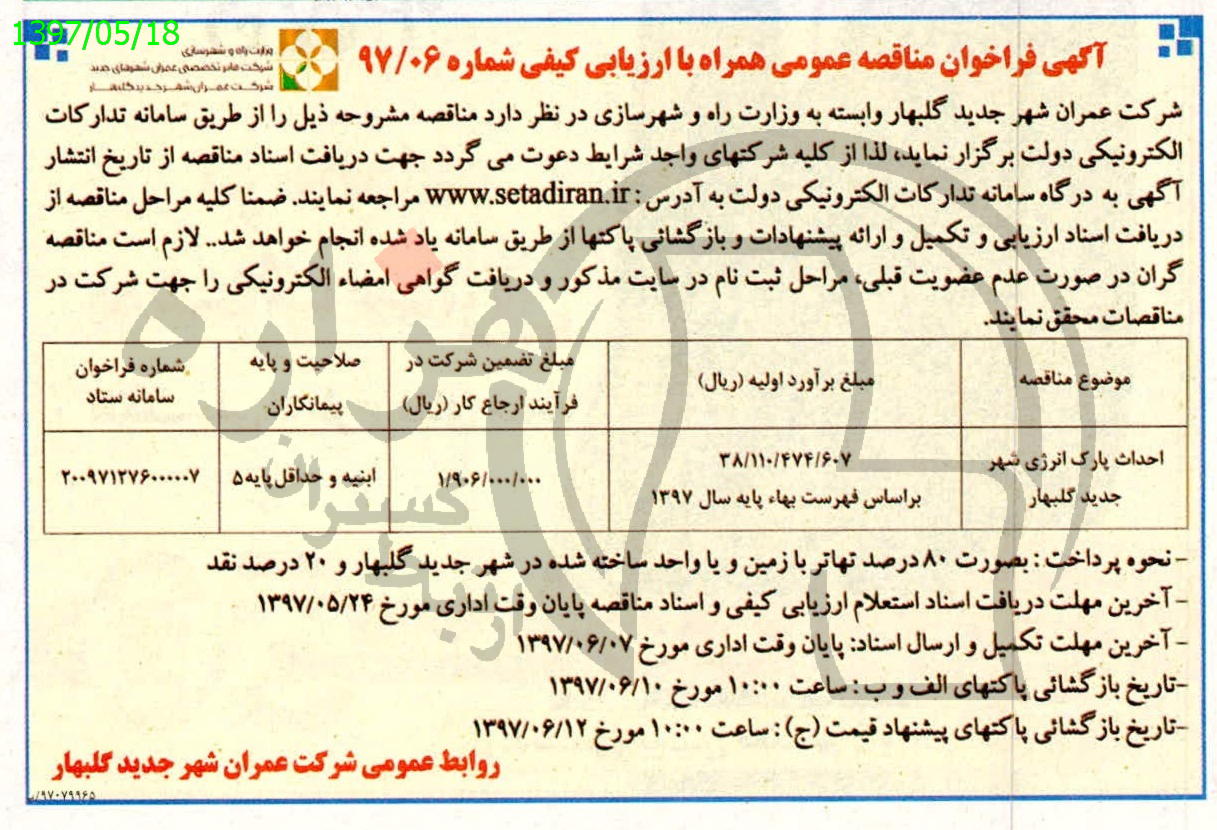 1397/05/18
وزارت راه و شهرسازی
شرکت مادر تخصصی عمران شهرهای جدید
شرکت عمران شهر جدید گلبهار
آگهی فراخوان مناقصه عمومی همراه با ارزیابی کیفی شماره ۹۷/۰۶
شرکت عمران شهر جدید گلبهار وابسته به وزارت راه و شهرسازی در نظر دارد مناقصه مشروحه ذیل را از طریق سامانه تدارکات
الکترونیکی دولت برگزار نماید، لذا از کلیه شرکتهای واجد شرایط دعوت می گردد جهت دریافت اسناد مناقصه از تاریخ انتشار
آگهی به درگاه سامانه تدارکات الکترونیکی دولت به آدرس : www.setadiran.ir مراجعه نمایند. ضمنا کلیه مراحل مناقصه از
دریافت اسناد ارزیابی و تکمیل و ارائه پیشنهادات و بازگشائی پاکتها از طریق سامانه یاد شده انجام خواهد شد.. لازم است مناقصه
گران در صورت عدم عضویت قبلی، مراحل ثبت نام در سایت مذکور و دریافت گواهی امضاء الکترونیکی را جهت شرکت در
مناقصات محقق نمایند.
موضوع مناقصه
مبلغ برآورد اولیه (ریال)
مبلغ تضمین شرکت در
فرآیند ارجاع کار (ریال)
صلاحیت و پایه
پیمانکاران
شماره فراخوان
سامانه ستاد
احداث پارک انرژی شهر
جدید گلبهار
۳۸/۱۱۰/۴۷۴/۶۰۷
براساس فهرست بهاء پایه سال ۱۳۹۷
۱/۹۰۶/۰۰۰/۰۰۰
ابنیه و حداقل پایه۵
۲۰۰۹۷۱۲۷۶۰۰۰۰۰۷
- نحوه پرداخت : بصورت ۸۰ درصد تهاتر با زمین و یا واحد ساخته شده در شهر جدید گلبهار و ۲۰ درصد نقد
- آخرین مهلت دریافت اسناد استعلام ارزیابی کیفی و اسناد مناقصه پایان وقت اداری مورخ ۱۳۹۷/۰۵/۲۴
- آخرین مهلت تکمیل و ارسال اسناد: پایان وقت اداری مورخ ۱۳۹۷/۰۶/۰۷
-تاریخ بازگشائی پاکتهای الف و ب : ساعت ۱۰:۰۰ مورخ ۱۳۹۷/۰۶/۱۰
-تاریخ بازگشائی پاکتهای پیشنهاد قیمت (ج) : ساعت ۱۰:۰۰ مورخ ۱۳۹۷/۰۶/۱۲
روابط عمومی شرکت عمران شهر جدید گلبهار
۹۷۰۷۹۹۶۵/ب
هزاره
گستران